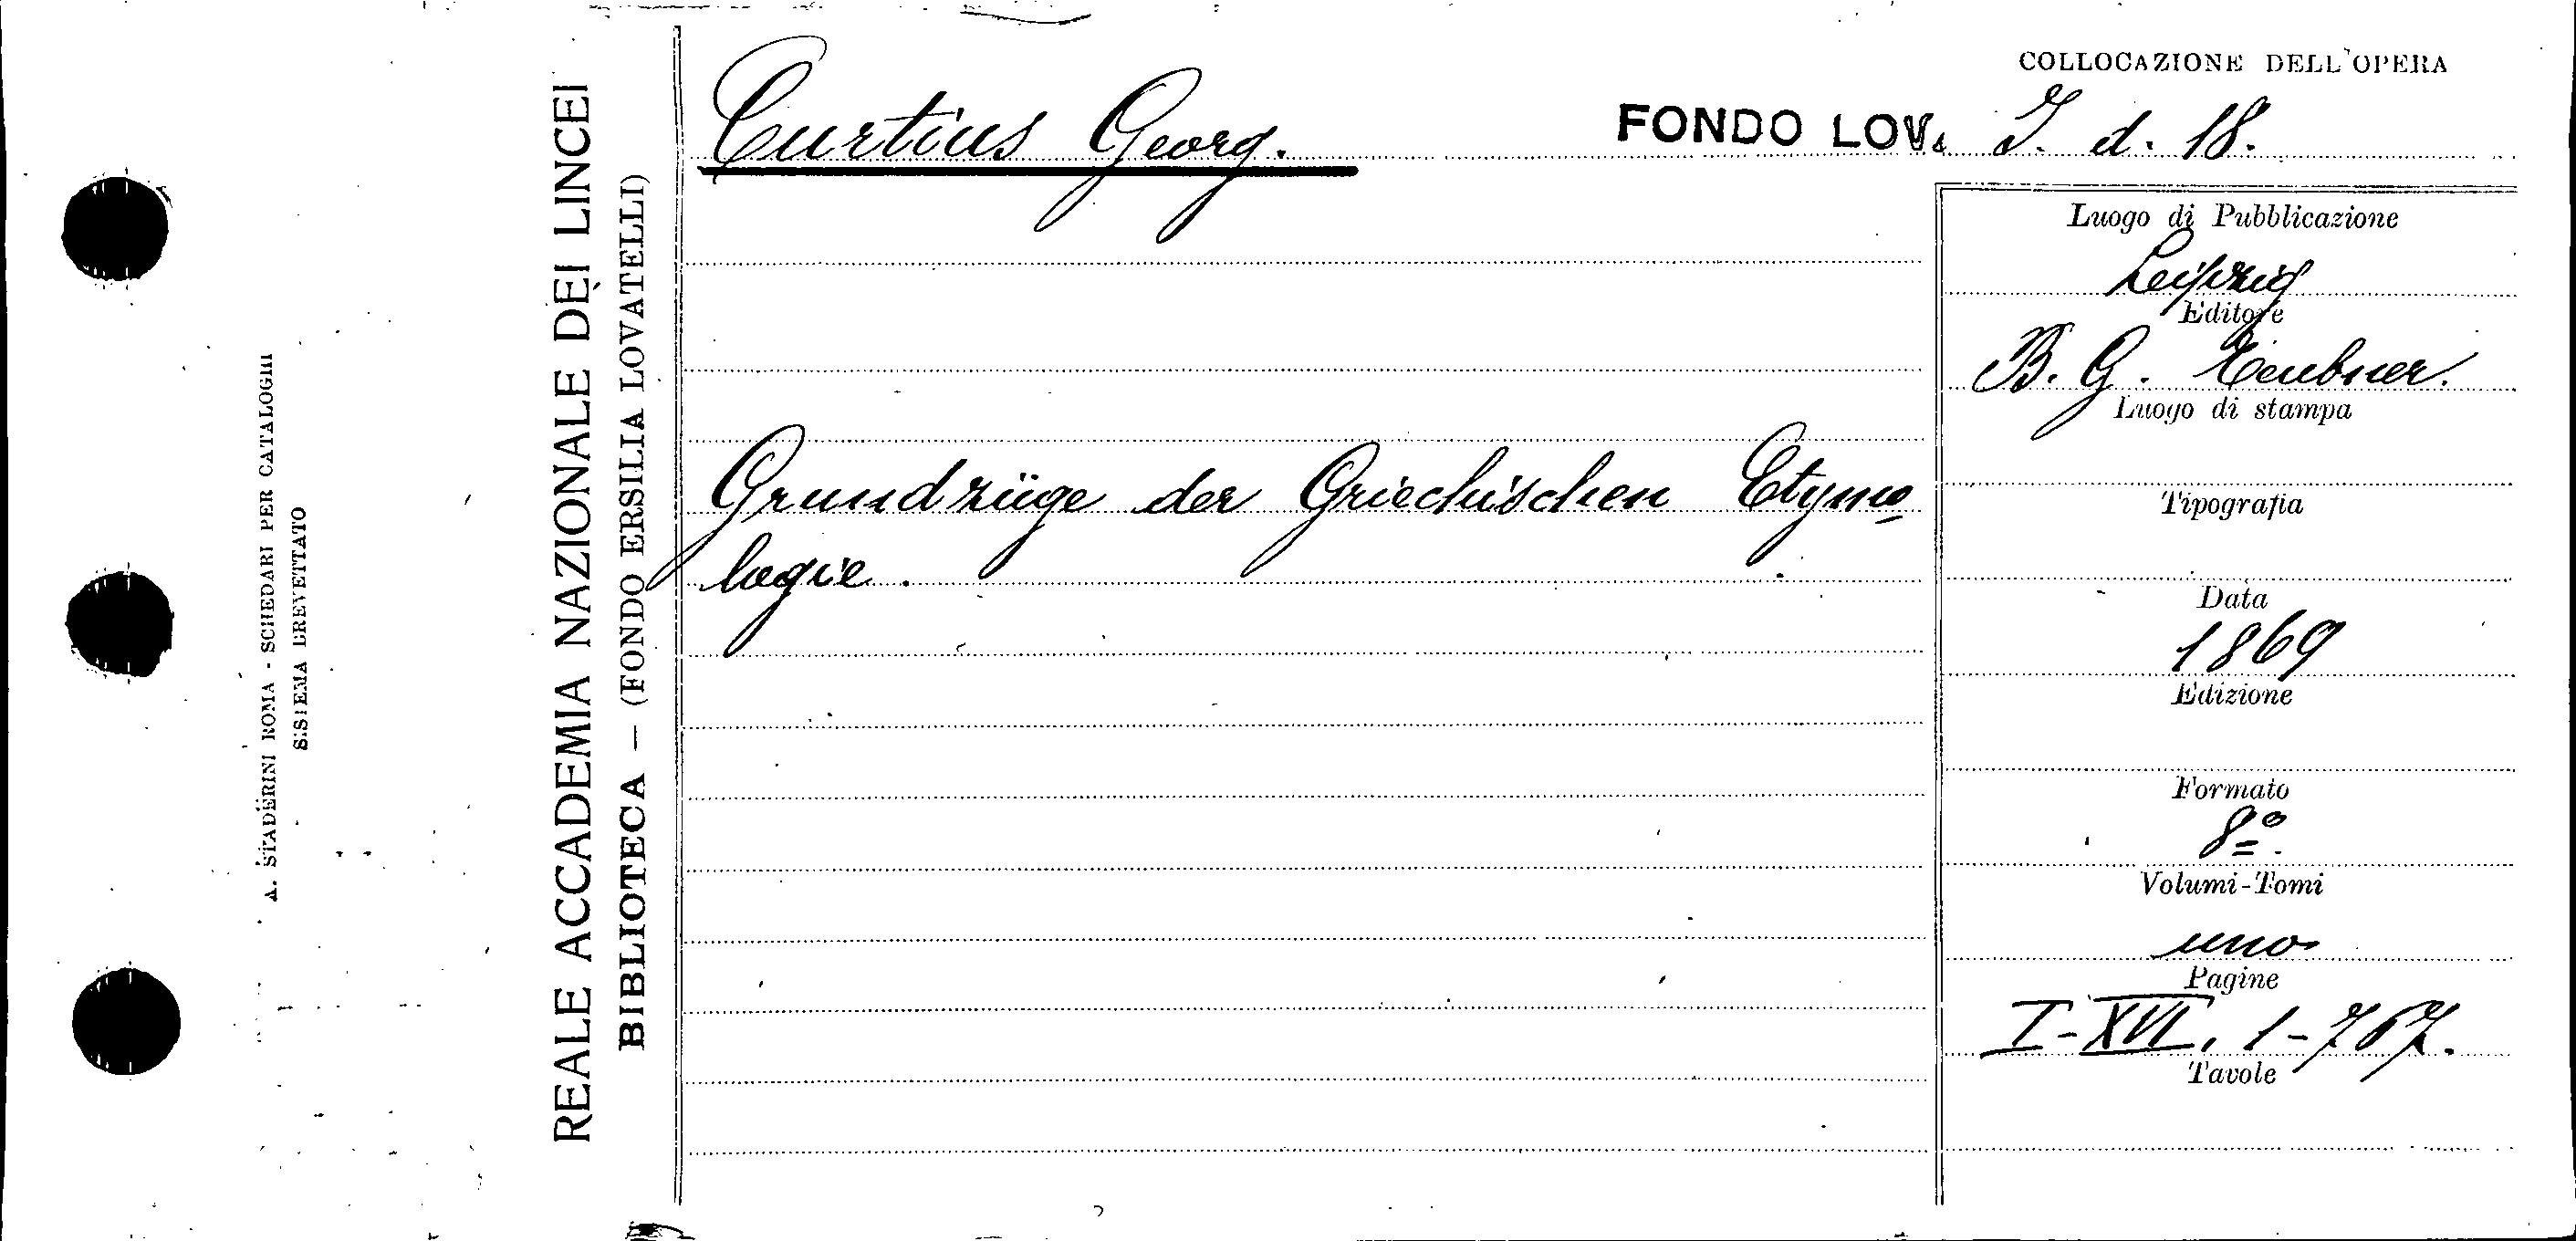 COLLOCAZIONE DELL'OPERA
Curtius Georg.
FONDO LOV. I. d. 18.
Grundzüge der Griechischen Etymo
logie.
Luogo di Pubblicazione
Leipzig
Editore
B. G. Teubner.
Luogo di stampa
Tipografia
Data
1869
Edizione
Formato
8º
Volumi-Tomi
uno
Pagine
I-XVI, 1-767.
Tavole
REALE ACCADEMIA NAZIONALE DEI LINCEI
BIBLIOTECA — (FONDO ERSILIA LOVATELLI)
A. STADERINI ROMA - SCHEDARI PER CATALOGHI
SISTEMA BREVETTATO